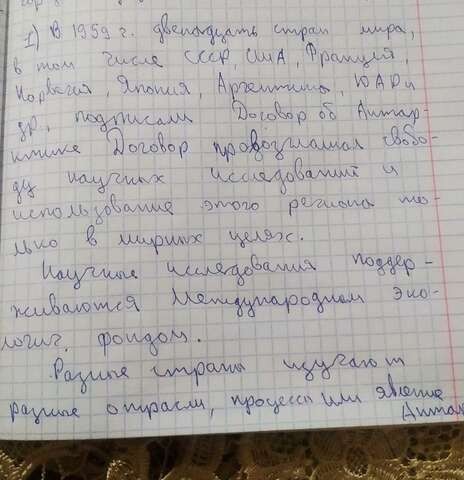 1) В 1959 г. двенадцать стран мира,
в том числе СССР, США, Франция,
Норвегия, Япония, Аргентины, ЮАР и
др, подписали Договор об Антар-
ктике Договор провозглашал свобо-
ду научных исследований и
использование этого региона то-
лько в мирных целях.
Научные исследования поддер-
живаются Международном эко-
логич. фондом.
Разные страны изучают
разные отрасли, процессы или явление
Антар